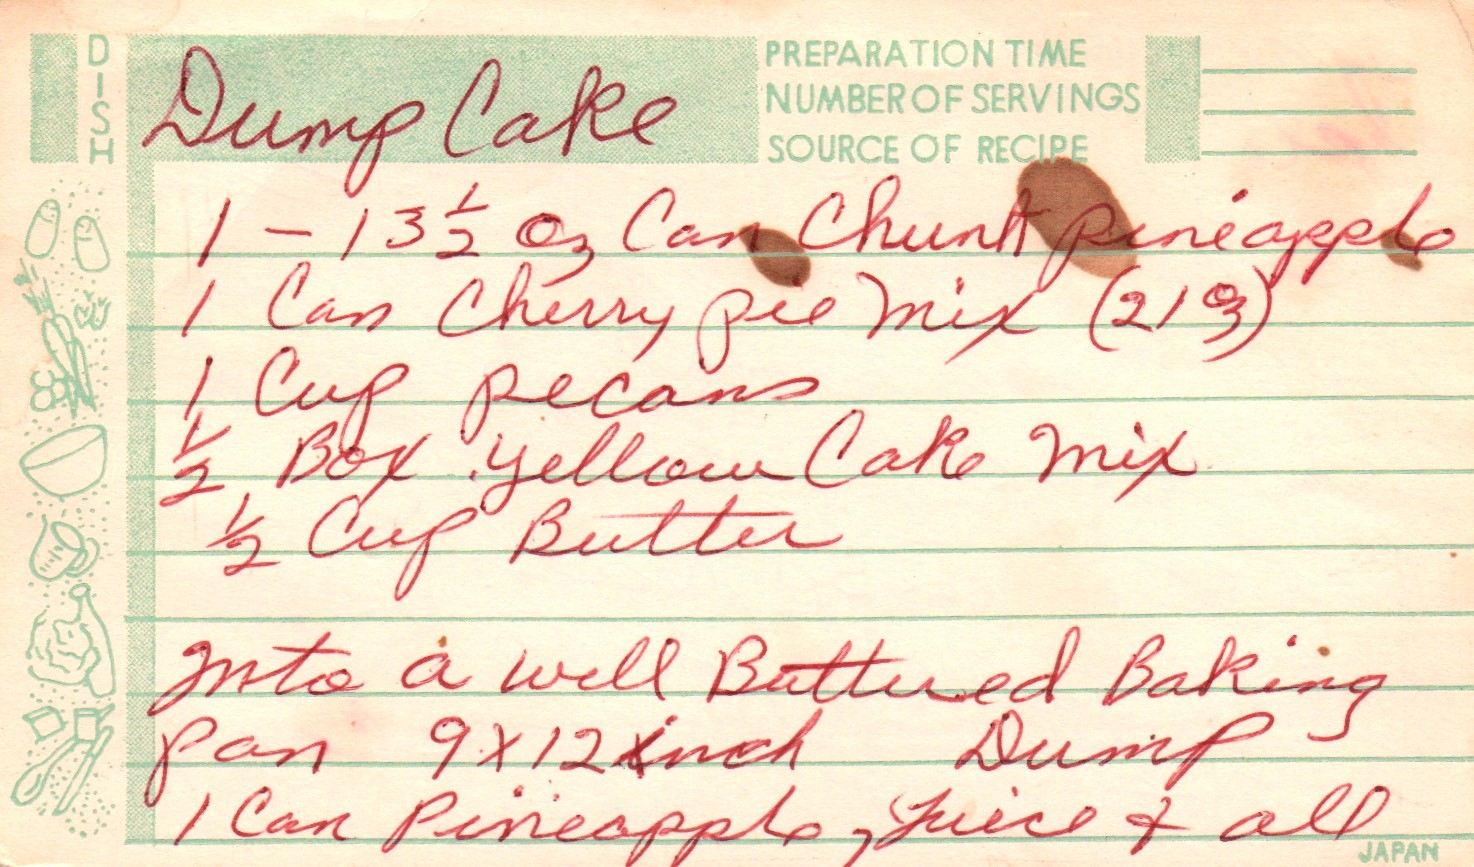 DISH
Dump Cake
PREPARATION TIME
NUMBER OF SERVINGS
SOURCE OF RECIPE
1 - 13 1/2 oz Can Chunk pineapple
1 Can Cherry pie mix (21 oz)
1 Cup pecans
1/2 Box yellow Cake mix
1/2 Cup Butter
Into a well Buttered Baking
pan 9x12 inch Dump
1 Can Pineapple, Juice & all
JAPAN